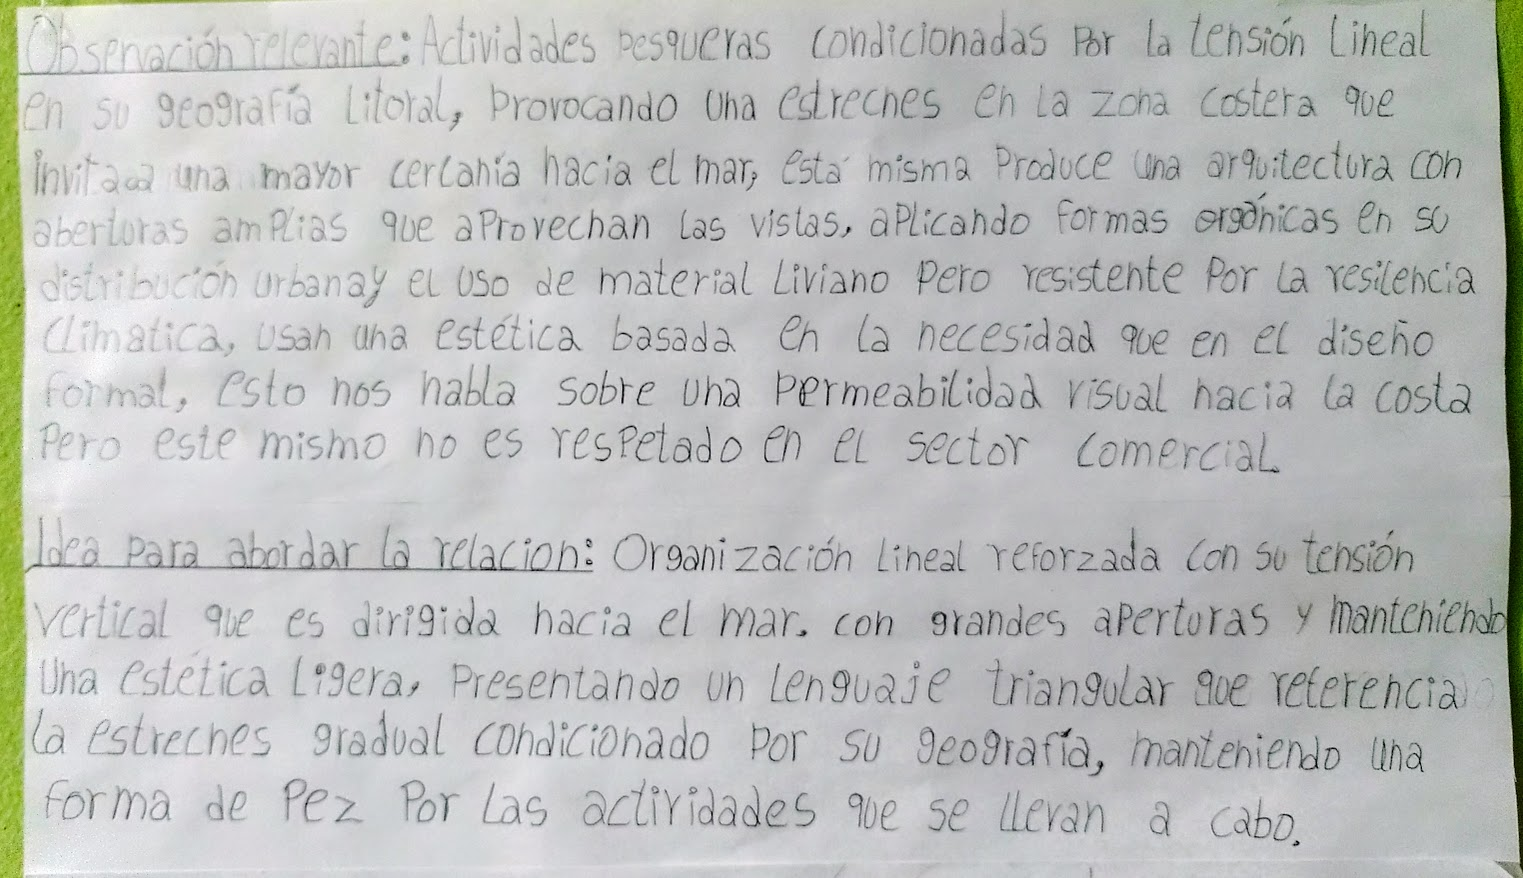 Observación relevante: Actividades pesqueras condicionadas por la tensión lineal
en su geografía litoral, provocando una estreches en la zona costera que
invita a una mayor cercanía hacia el mar, esta misma produce una arquitectura con
aberturas amplias que aprovechan las vistas, aplicando formas orgánicas en su
distribución urbana y el uso de material liviano pero resistente por la resilencia
climática, usan una estética basada en la necesidad que en el diseño
formal, esto nos habla sobre una permeabilidad visual hacia la costa
pero este mismo no es respetado en el sector comercial
Idea para abordar la relacion: Organización lineal reforzada con su tensión
vertical que es dirigida hacia el mar. con grandes aperturas y manteniendo
una estética ligera, presentando un lenguaje triangular que referencia
la estreches gradual condicionado por su geografía, manteniendo una
forma de pez por las actividades que se llevan a cabo.